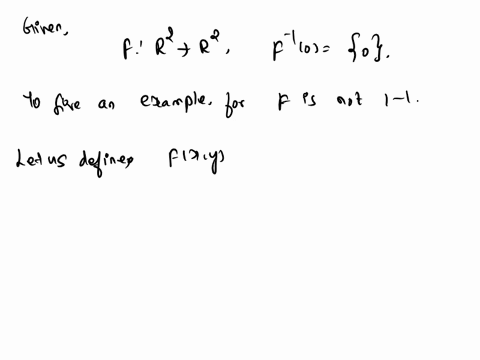 Given,
F: R² → R², F⁻¹(0) = {0}.
To give an example, for F is not 1-1.
Let us define, F(x,y)